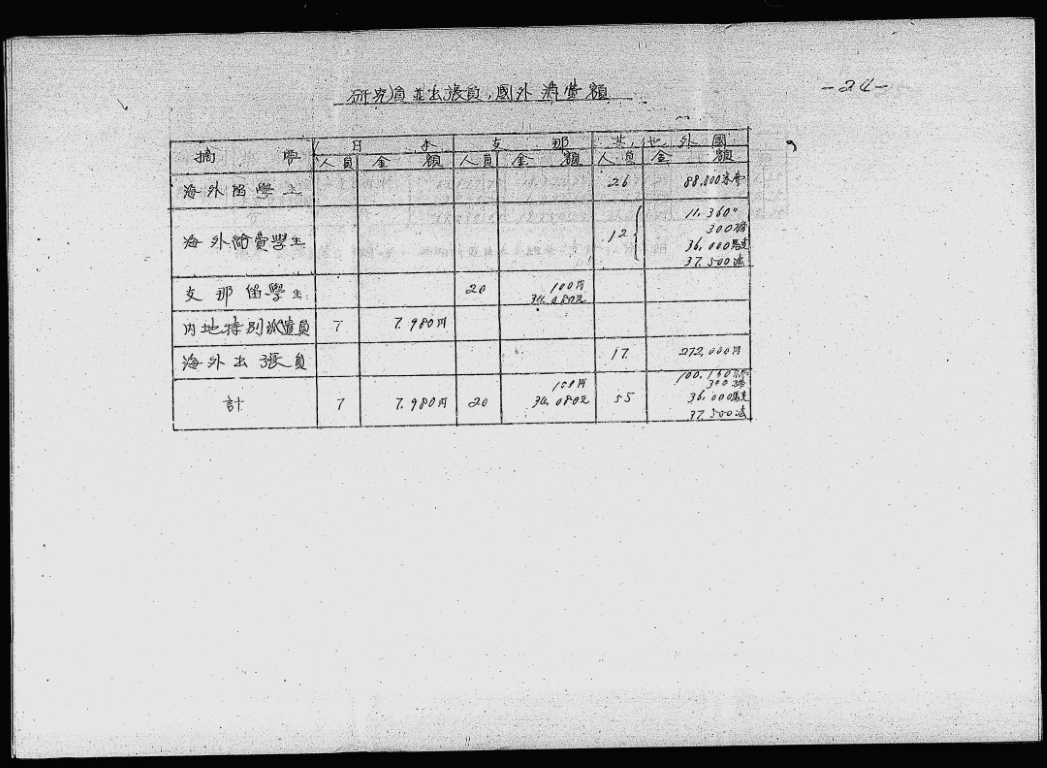 -24-
研究員並出張員ノ國外消費額
摘 要 日 本 支 那 其ノ他ノ外國
人員 金 額 人員 金 額 人員 金 額
海外留學生 26 88.800米弗
海外給費學生 12 11.360〃
300磅
36.000馬克
37.500法
支那留學生 20 100円
34.080元
内地特別派遣員 7 7.980円
海外出張員 17 272,000円
計 7 7.980円 20 100円
34.080元 55 100,160
300
36.000馬克
37.500法